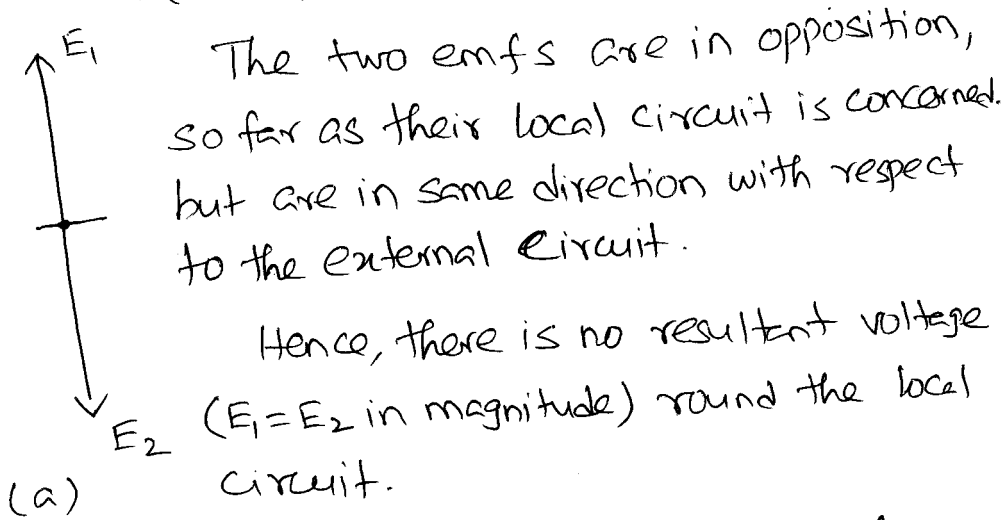 E₁
The two emfs are in opposition,
so far as their local circuit is concerned.
but are in same direction with respect
to the external circuit.
Hence, there is no resultant voltage
E₂ (E₁=E₂ in magnitude) round the local
(a) circuit.